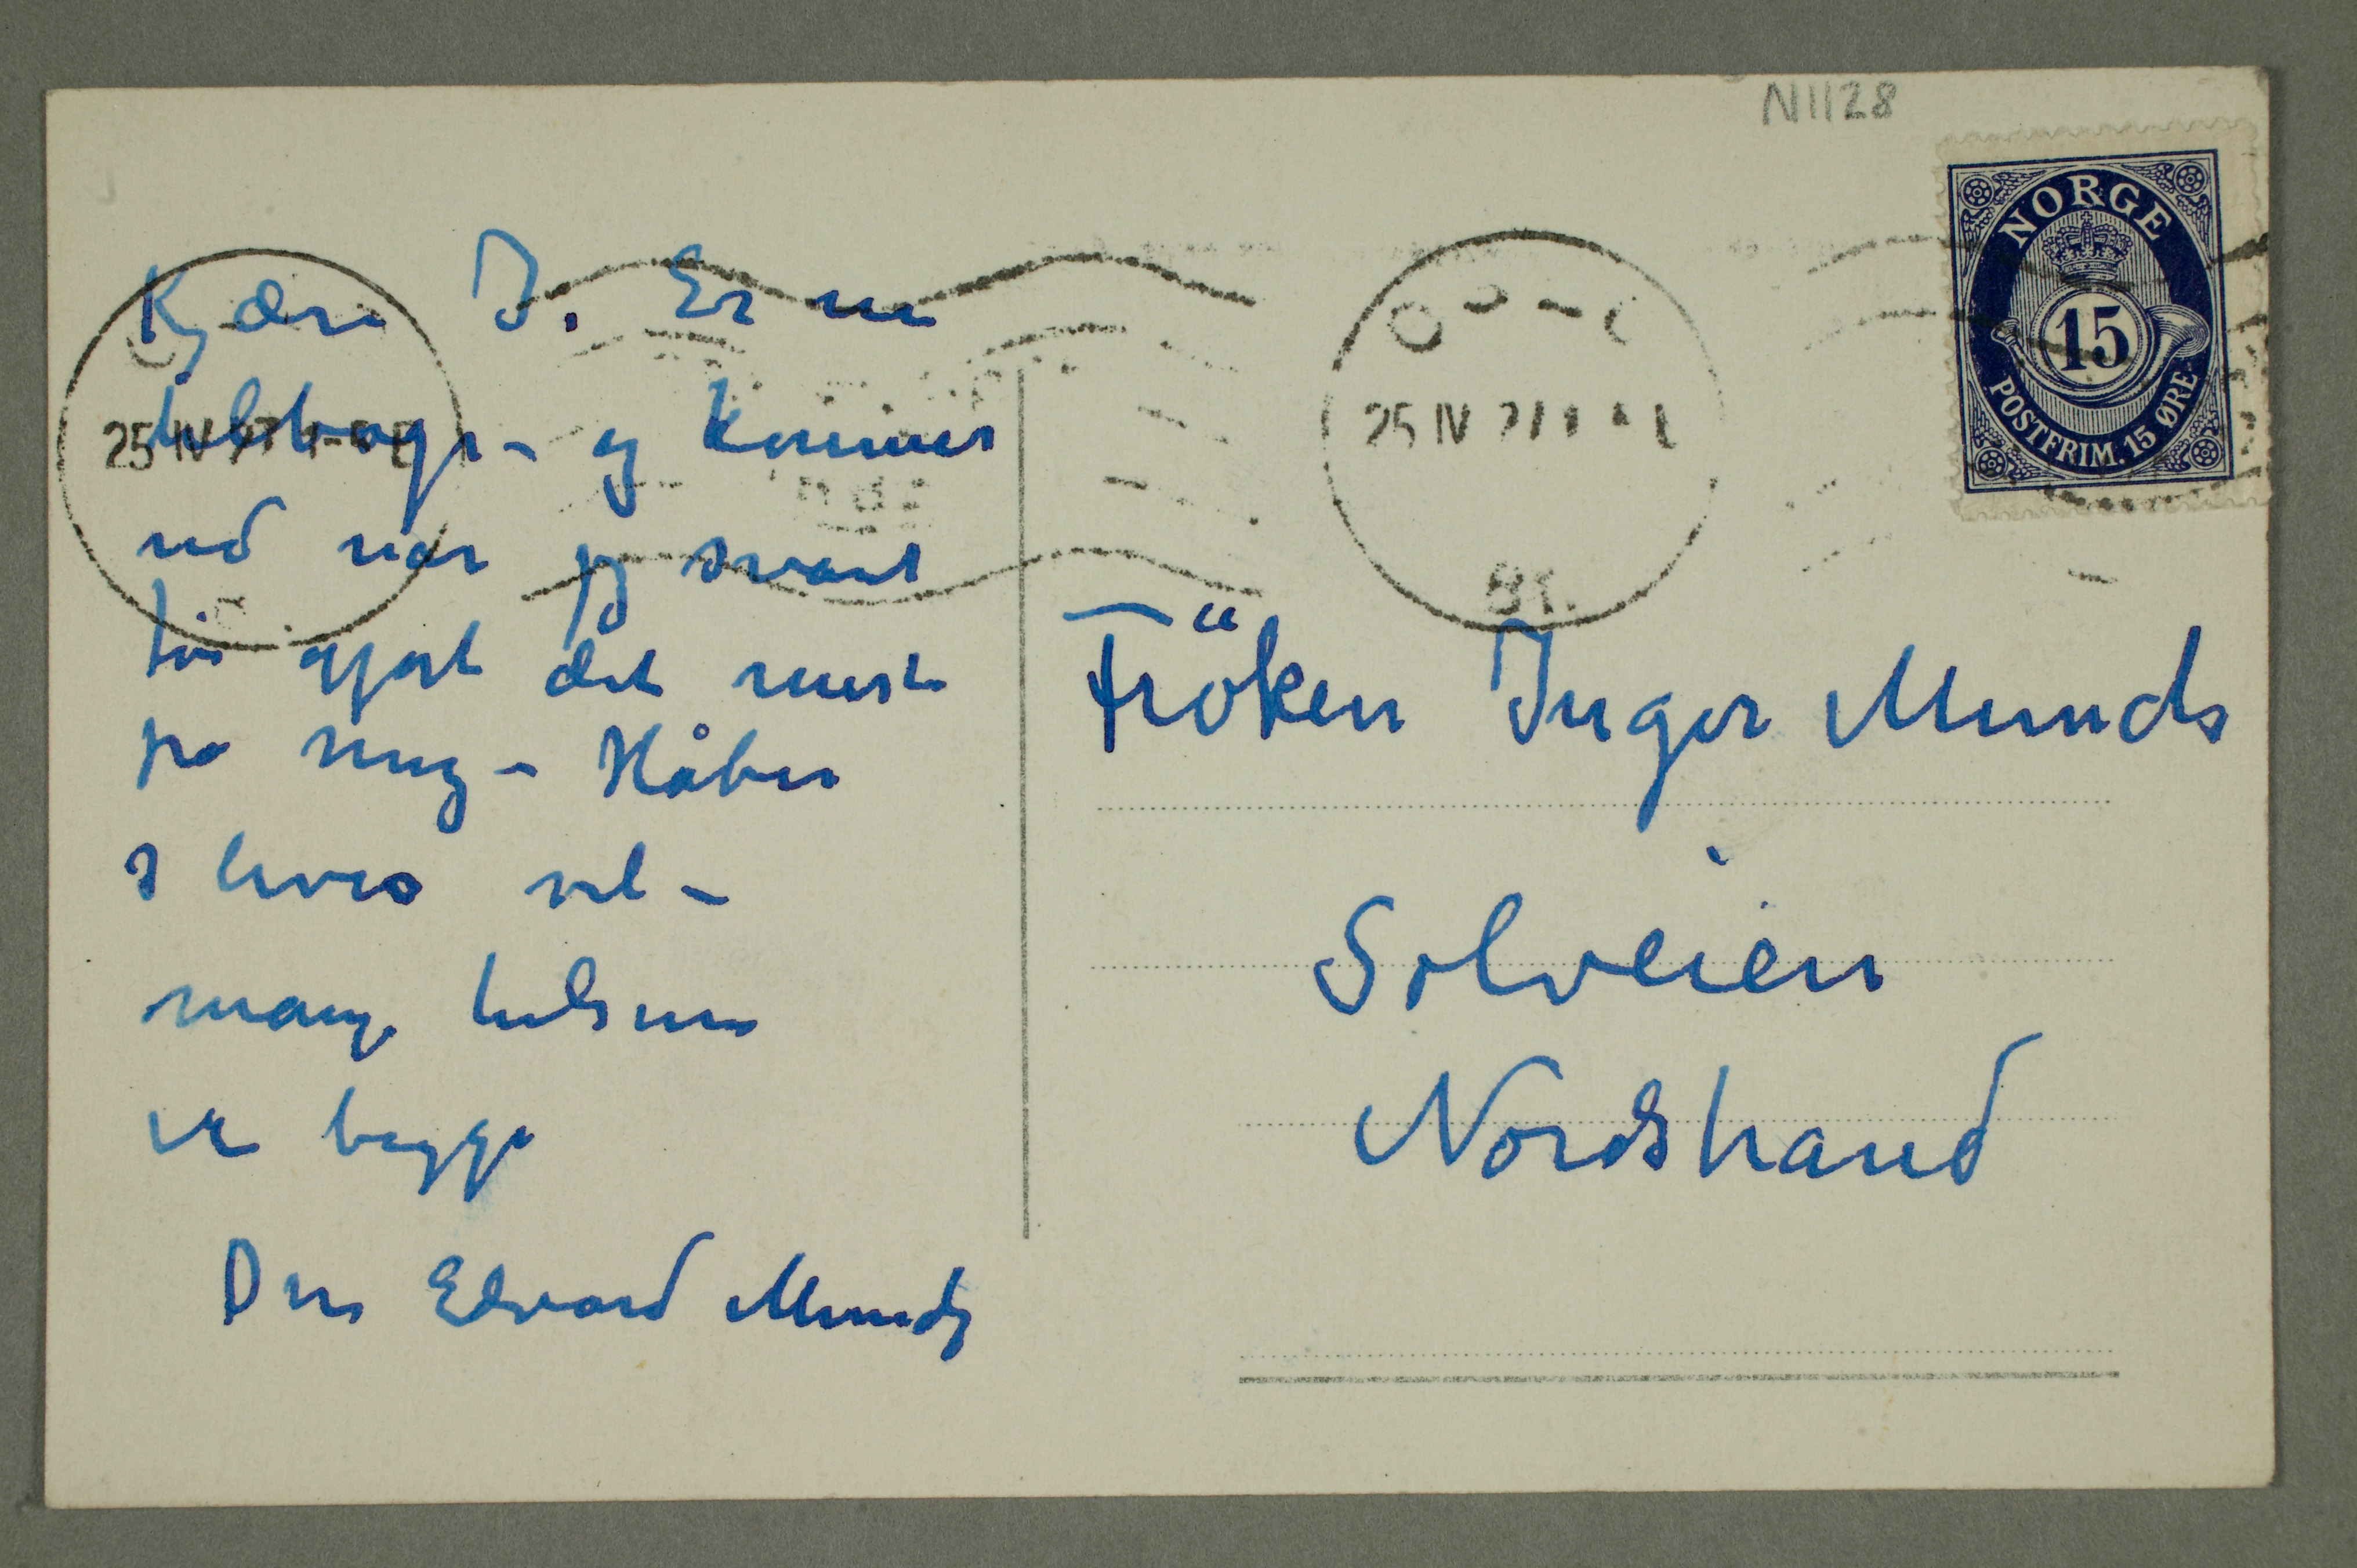 N1128
NORGE
15
POSTFRIM. 15 ØRE
25 IV 27
25 IV 27
81.
Kjære I. Er nu
tilbage – og kommer
ud når jeg snart
får gjort det meste
på mig – Håber
I lever vel –
mange hilsener
til begge
Din Edvard Munch
Fröken Inger Munch
Solveien
Nordstrand